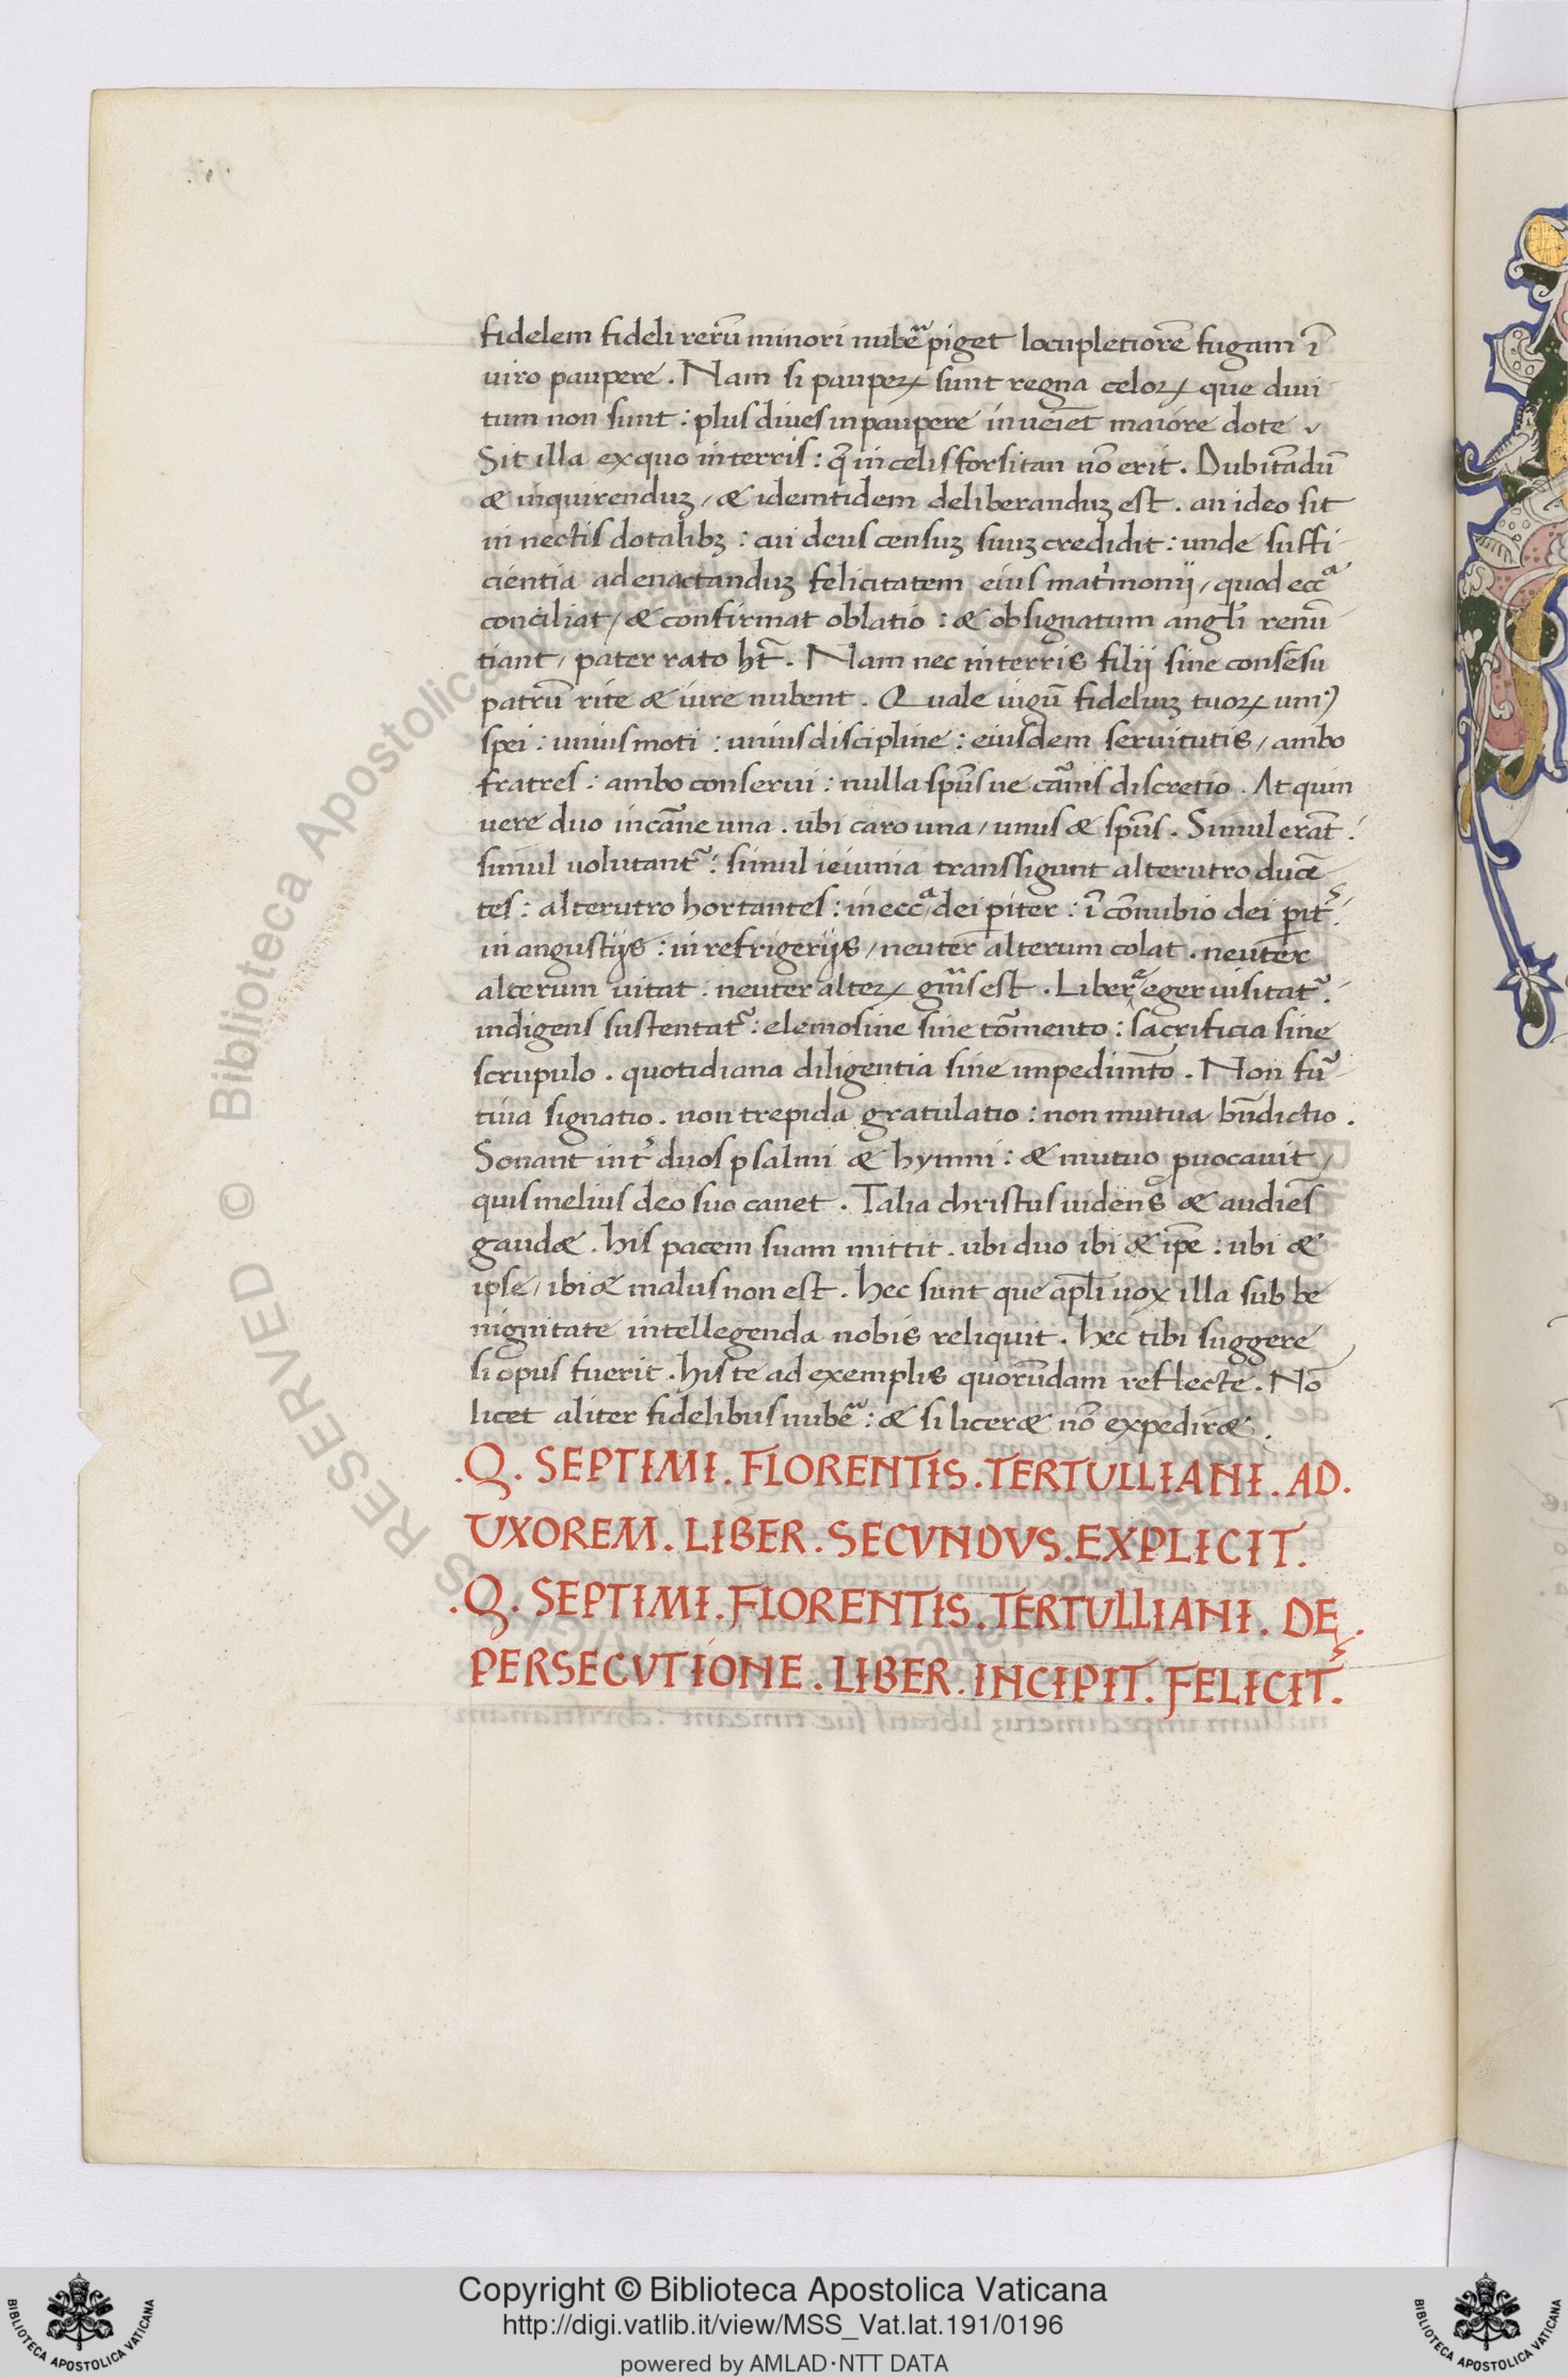 fidelem fideli rerū minori nubē piget locupletiorē fugam ī
uiro paupere. Nam si pauperꝝ sunt regna celoꝝ que diui
tum non sunt: plus diues in paupere inueiet maiore dote
Sit illa ex quo in terris: q̄ in celis forsitan nō erit. Dubitādū
& inquirenduꝫ / & idemtidem deliberanduꝫ est. an ideo sit
in nectis dotalibꝫ: cui deus censuꝫ suuꝫ credidit: unde suffi
cientia ad enactanduꝫ felicitatem eius matrimonij / quod eccᵃ
conciliat / & confirmat oblatio: & obsignatum angli renū
tiant / pater rato ht̄. Nam nec in terris filij sine consēsu
patrū rite & iure nubent. Quale iugū fideliuꝫ tuoꝝ uniꝰ
spei: unius moti: unius discipline: eiusdem seruitutis / ambo
fratres: ambo conserui: nulla sp̄us ue carnis discretio. At quin
uere duo in carne una. ubi caro una / unus & sp̄us. Simul erāt:
simul uolutant᷑: simul ieiunia transsigunt alterutro ducē
tes: alterutro hortantes: in eccᵃ dei ꝑiter: ī cōnubio dei ꝑit᷑:
in angustijs: in refrigerijs / neuter alterum colat. neuter
alterum uitat. neuter alteꝝ guis est. Libere eger uisitat᷑:
indigens sustentat᷑: elemosine sine tormento: sacrificia sine
scrupulo. quotidiana diligentia sine impedimto. Non fur
tiua signatio. non trepida gratulatio: non mutua bn̄dictio.
Sonant int᷑ duos psalmi & hymni: & mutuo ꝓuocauit /
quis melius deo suo canet. Talia christus uidens & audiēs
gaud&. his pacem suam mittit. ubi duo ibi & ip̄e: ubi &
ipse / ibi & malus non est. hec sunt que ap̄li uox illa sub be
nignitate intellegenda nobis reliquit. hec tibi suggere
si opus fuerit. his te ad exemplis quorūdam reflecte. Nō
licet aliter fidelibus nubē: & si licer& nō expedir&.
.Q. SEPTIMI. FLORENTIS. TERTULLIANI. AD.
UXOREM. LIBER. SECVNDVS. EXPLICIT.
.Q. SEPTIMI. FLORENTIS. TERTULLIANI. DE.
PERSECVTIONE. LIBER. INCIPIT. FELICIT᷑.
RESERVED © Biblioteca Apostolica
Copyright © Biblioteca Apostolica Vaticana
http://digi.vatlib.it/view/MSS_Vat.lat.191/0196
powered by AMLAD·NTT DATA
BIBLIOTECA APOSTOLICA VATICANA
BIBLIOTECA APOSTOLICA VATICANA